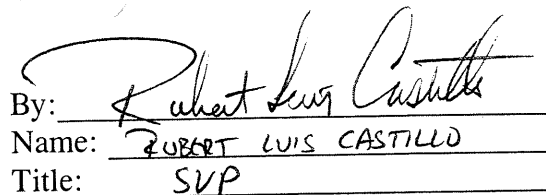 By: Robert Luis Castillo
Name: ROBERT LUIS CASTILLO
Title: SVP